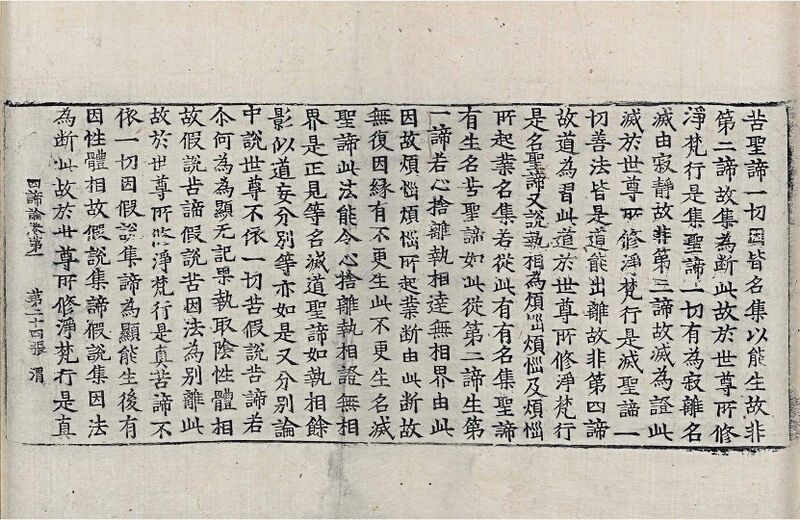 苦聖諦一切因皆名集以能生故非
第二諦故集為断此故於世尊所修
淨梵行是集聖諦一切有為寂離名
滅由寂靜故非第三諦故滅為證此
滅於世尊所修淨梵行是滅聖諦一
切善法皆是道能出離故非第四諦
故道為習此道於世尊所修淨梵行
是名聖諦又說執相為煩惱煩惱及煩惱
所起業名集若從此有有名集聖諦
有生名苦聖諦如此從第二諦生第
一諦若心捨離執相達無相界由此
因故煩惱煩惱所起業断由此断故
無復因緣有不更生此不更生名滅
聖諦此法能令心捨離執相證無相
界是正見等名滅道聖諦如執相餘
影似道妄分別等亦如是又分別論
中說世尊不依一切苦假說苦諦若
尒何為為顯无記果執取陰性體相
故假說苦諦假說苦因法為別離此
故於世尊所修淨梵行是真苦諦不
依一切因假說集諦為顯能生後有
因性體相故假說集諦假說集因法
為断此故於世尊所修淨梵行是真
四諦論卷第一 第二十四張 渭